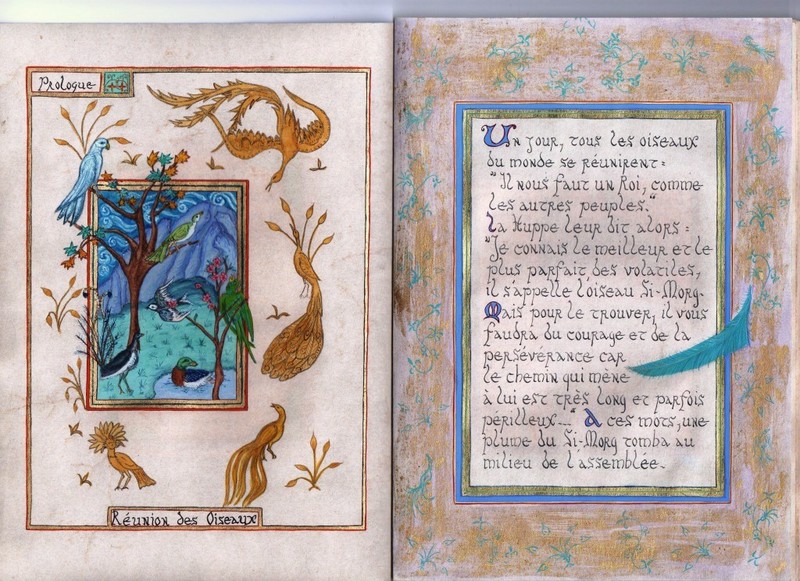 Prologue
Réunion des Oiseaux
Un jour, tous les oiseaux
du monde se réunirent :
"Il nous faut un Roi, comme
les autres peuples."
La Huppe leur dit alors :
"Je connais le meilleur et le
plus parfait des volatiles,
il s'appelle l'oiseau Si-Morg.
Mais pour le trouver, il vous
faudra du courage et de la
persévérance car
le chemin qui mène
à lui est très long et parfois
périlleux..." A ces mots, une
plume du Si-Morg tomba au
milieu de l'assemblée.